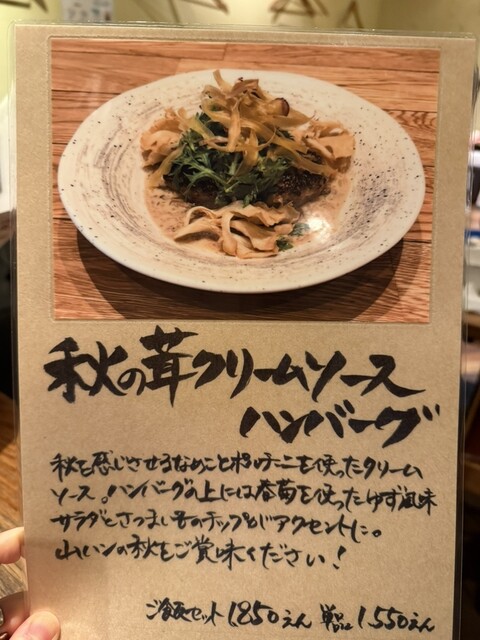 秋の茸クリームソース
ハンバーグ
秋を感じさせるなめことポルチーニを使ったクリーム
ソース。ハンバーグの上には春菊を使ったゆず風味
サラダとさつまいものチップをアクセントに。
山ハンの秋をご賞味ください!
ご飯セット 1,850えん 単品 1,550えん